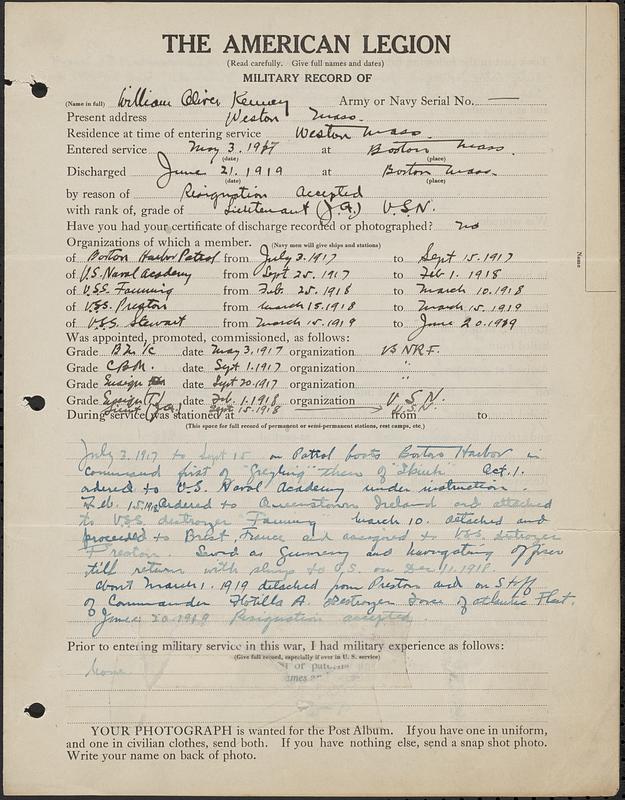 THE AMERICAN LEGION
(Read carefully. Give full names and dates)
MILITARY RECORD OF
(Name in full) William Oliver Kenney Army or Navy Serial No. —
Present address Weston Mass.
Residence at time of entering service Weston Mass.
Entered service May 3. 1917 at Boston Mass.
(date) (place)
Discharged June 21. 1919 at Boston Mass.
(date) (place)
by reason of Resignation Accepted
with rank, of grade of Lieutenant (J.G.) U.S.N.
Have you had your certificate of discharge recorded or photographed? no
Organizations of which a member. (Navy men will give ships and stations)
of Boston Harbor Patrol from July 3. 1917 to Sept 15. 1917
of U.S. Naval Academy from Sept 25. 1917 to Feb 1. 1918
of U.S.S. Fanning from Feb. 25. 1918 to March 10. 1918
of U.S.S. Preston from March 15. 1918 to March 15. 1919
of U.S.S. Stewart from March 15. 1919 to June 20. 1919
Was appointed, promoted, commissioned, as follows:
Grade B.M. 1/c date May 3. 1917 organization USNRF.
Grade C.B.M. date Sept 1. 1917 organization "
Grade Ensign date Sept 20. 1917 organization "
Grade Ensign (T.) date Feb. 1. 1918 organization U.S.N.
Lieut (J.G.) Sept 15. 1918 U.S.N.
During service was stationed at from to
(This space for full record of permanent or semi-permanent stations, rest camps, etc.)
July 3. 1917 to Sept 15 on Patrol boats Boston Harbor in
command first of "Greyling" then of Oct. 1.
ordered to U.S. Naval Academy under instruction.
Feb. 15. 1918 ordered to Queenstown Ireland and attached
to U.S.S. destroyer "Fanning" March 10. detached and
proceeded to Brest, France and assigned to U.S.S. destroyer
Preston. Served as Gunnery and navigating officer
till return with ship to U.S. on Dec 11. 1918.
about March 1. 1919 detached from Preston and on Staff
of Commander Flotilla A. Destroyer Force of Atlantic Fleet.
June 20. 1919 Resignation accepted.
Prior to entering military service in this war, I had military experience as follows:
(Give full record, especially if over in U. S. service)
None
YOUR PHOTOGRAPH is wanted for the Post Album. If you have one in uniform,
and one in civilian clothes, send both. If you have nothing else, send a snap shot photo.
Write your name on back of photo.
Name